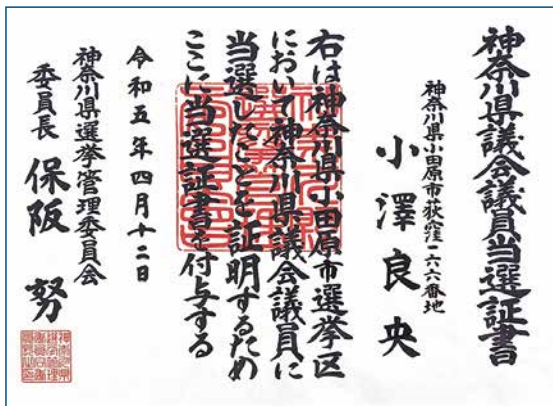 神奈川県議会議員当選証書
神奈川県小田原市荻窪一六六番地
小澤良央
右は神奈川県小田原市選挙区
において神奈川県議会議員に
当選したことを証明するため
ここに当選証書を付与する
令和五年四月十二日
神奈川県選挙管理委員会
委員長 保阪 努